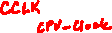 CCLK
CPU-Clock